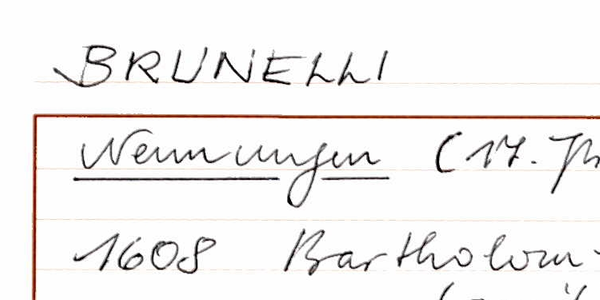 BRUNELLI
Nennungen (17. Jh
1608 Bartholom-